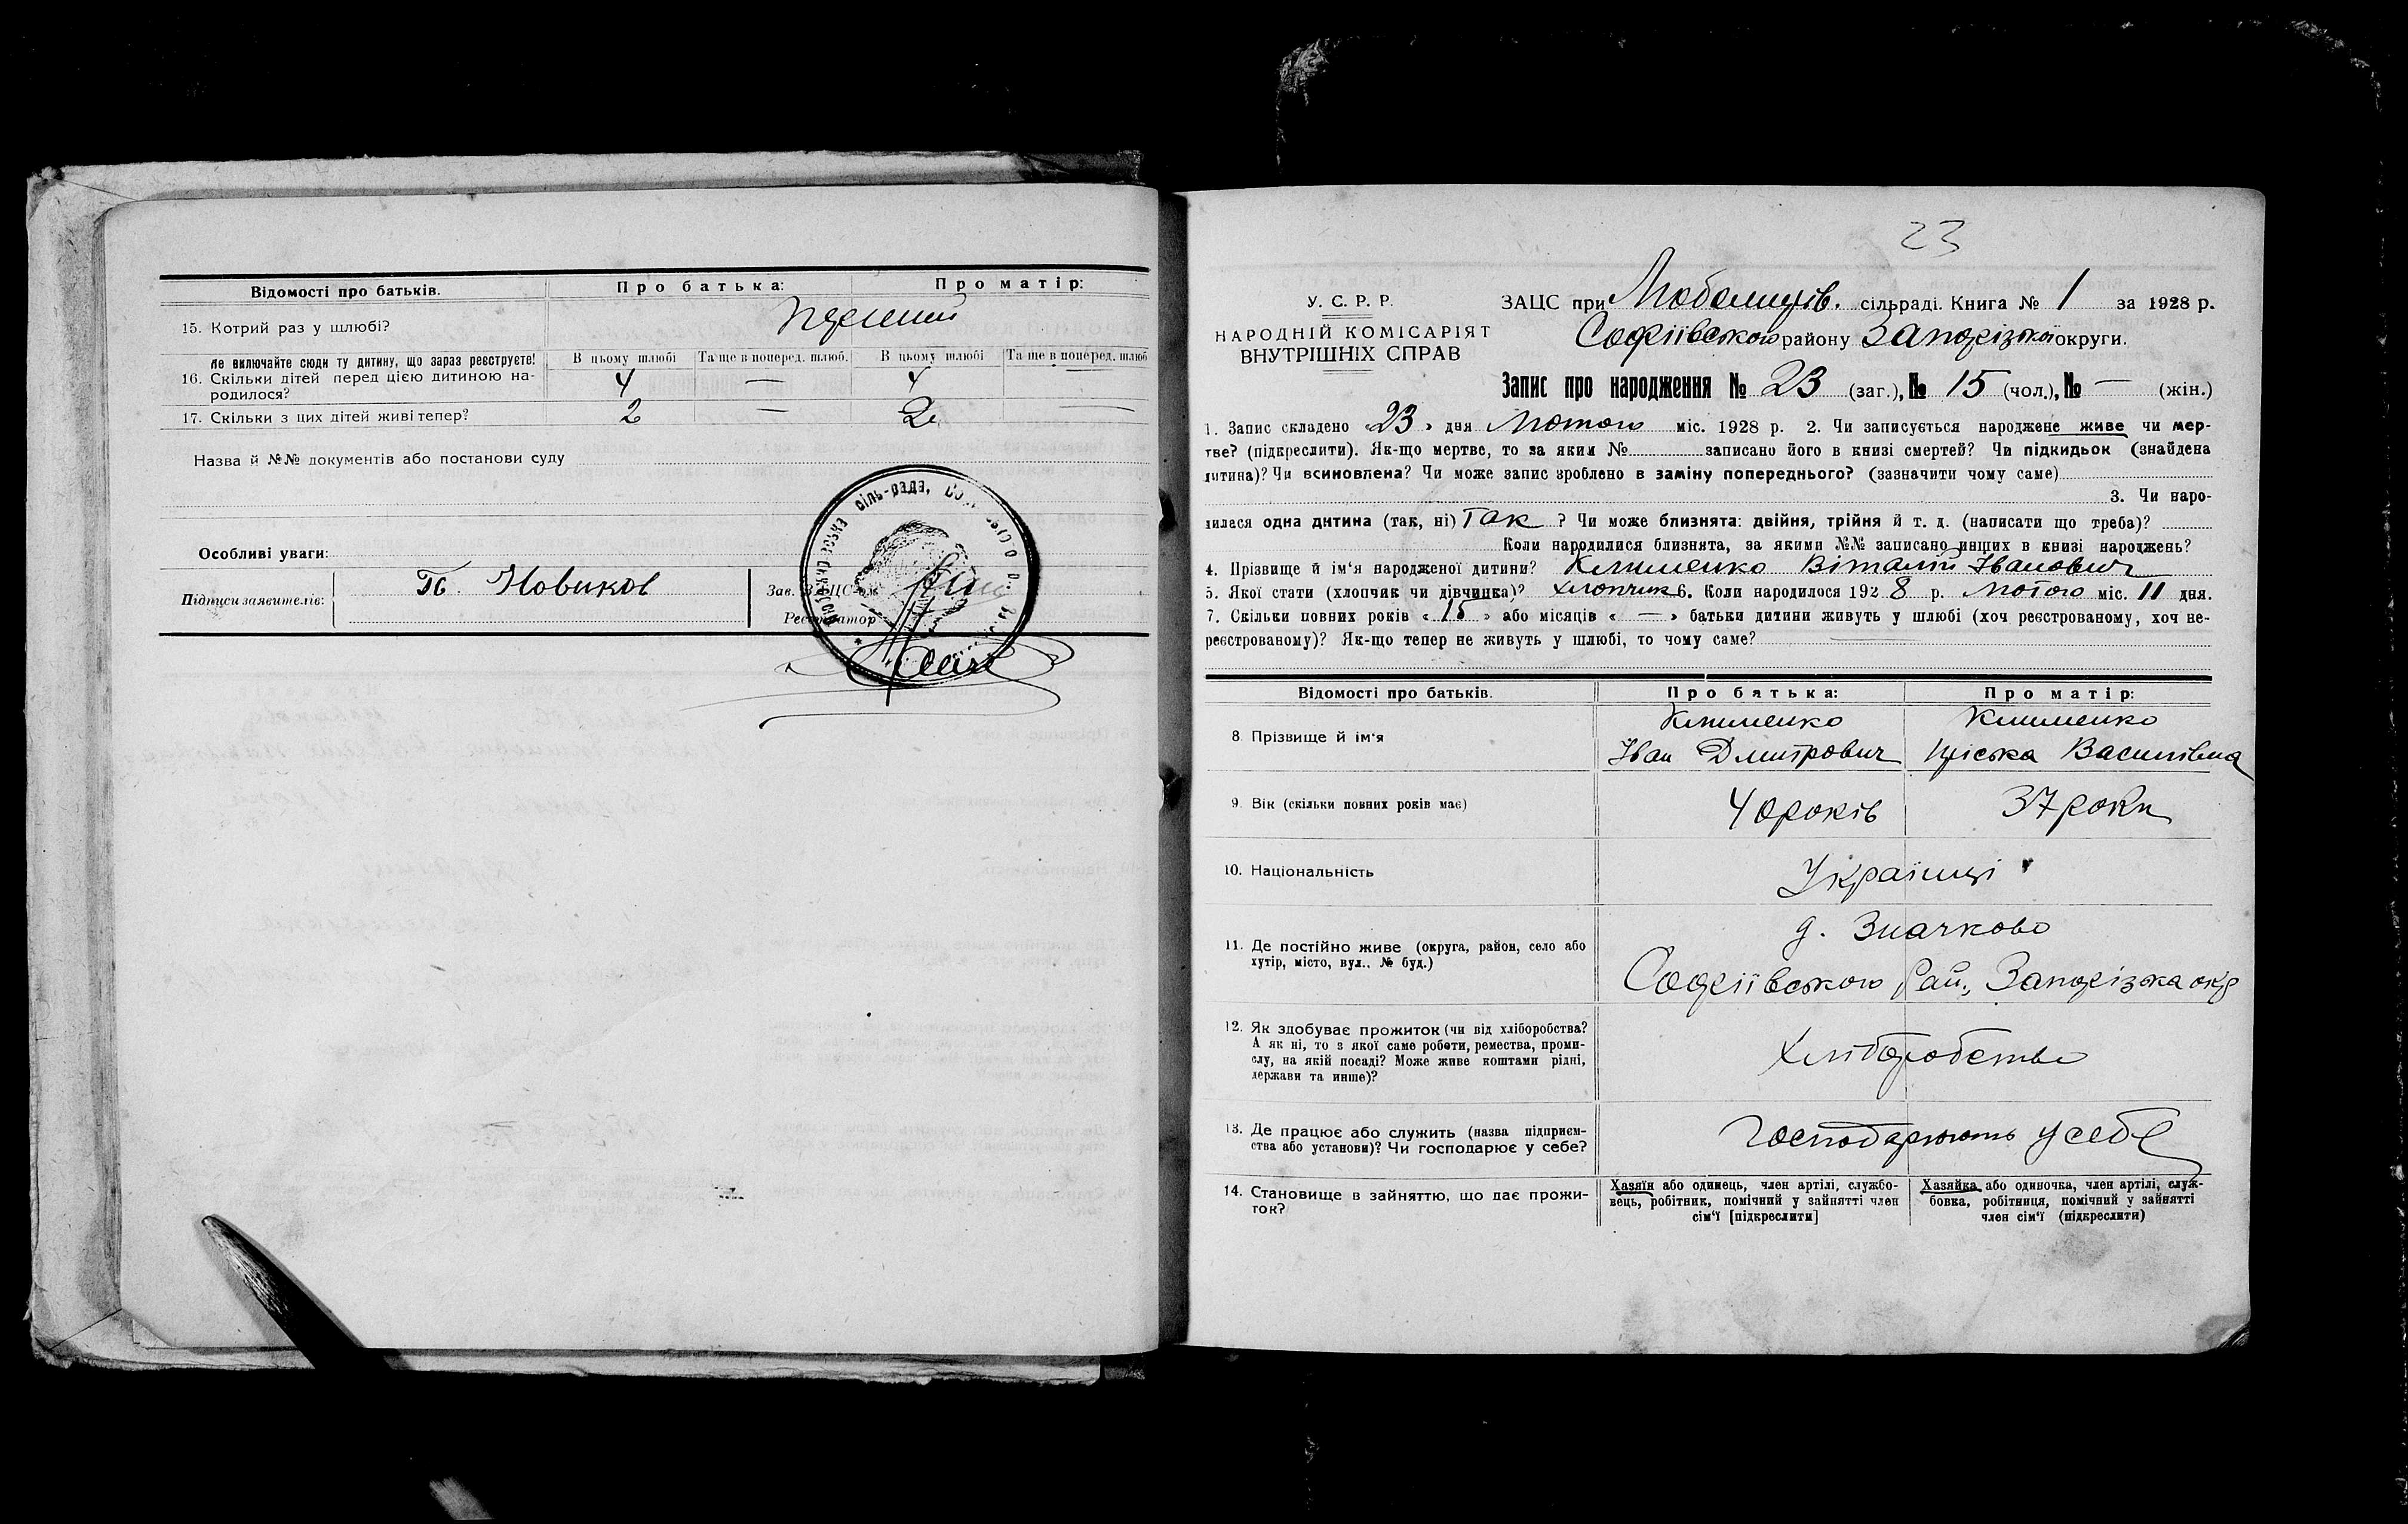 Відомості про батьків.
Про батька:
Про матір:
15. Котрий раз у шлюбі?
Перший
Не включайте сюди ту дитину, що зараз реєструєте!
В цьому шлюбі
Та ще в поперед. шлюб.
В цьому шлюбі
Та ще в поперед. шлюб
16. Скільки дітей перед цією дитиною на-
родилося?
4 — 4 —
17. Скільки з цих дітей живі тепер?
2 — 2 —
Назва й №№ документів або постанови суду
Особливі уваги:
Підписи заявителів:
Новиков
Зав. ЗАЦС'ом
Реєстратор
сіль-рада,
23
У. С. Р. Р.
НАРОДНІЙ КОМІСАРІЯТ
ВНУТРІШНІХ СПРАВ
ЗАЦС при сільраді. Книга № 1 за 1928 р.
Софіївського району Запорізької округи.
Запис про народження № 23 (заг.), № 15 (чол.), № — (жін.)
1. Запис складено «23» дня Лютого міс. 1928 р. 2. Чи записується народжене живе чи мер-
тве? (підкреслити). Як-що мертве, то за яким № записано його в книзі смертей? Чи підкидьок (знайдена
дитина)? Чи всиновлена? Чи може запис зроблено в заміну попереднього? (зазначити чому саме)
3. Чи наро-
дилася одна дитина (так, ні) Так ? Чи може близнята: двійня, трійня й т. д. (написати що треба)?
Коли народилися близнята, за якими №№ записано инших в книзі народжень?
4. Прізвище й ім'я народженої дитини? Клименко Віталій Іванович
5. Якої стати (хлопчик чи дівчинка)? Хлопчик 6. Коли народилося 1928 р. Лютого міс. 11 дня.
7. Скільки повних років «15» або місяців «—» батьки дитини живуть у шлюбі (хоч реєстрованому, хоч не-
реєстрованому)? Як-що тепер не живуть у шлюбі, то чому саме? —
Відомості про батьків.
Про батька:
Про матір:
8. Прізвище й ім'я
Клименко
Іван Дмитрович
Клименко
Василівна
9. Вік (скільки повних років має)
40 років
37 роки
10. Національність
Українці
11. Де постійно живе (округа, район, село або
хутір, місто, вул., № буд.)
д. Значково
Софіївського Рай., Запорізька окр
12. Як здобуває прожиток (чи від хліборобства?
А як ні, то з якої саме роботи, ремества, проми-
слу, на якій посаді? Може живе коштами рідні,
держави та инше)?
Хліборобство
13. Де працює або служить (назва підприєм-
ства або установи)? Чи господарює у себе?
Господарюють у себе
14. Становище в зайняттю, що дає прожи-
ток?
Хазяїн або одинець, член артілі, службо-
вець, робітник, помічний у зайнятті член
сім'ї [підкреслити]
Хазяйка або одиночка, член артілі, служ-
бовка, робітниця, помічний у зайнятті
член сім'ї (підкреслити)